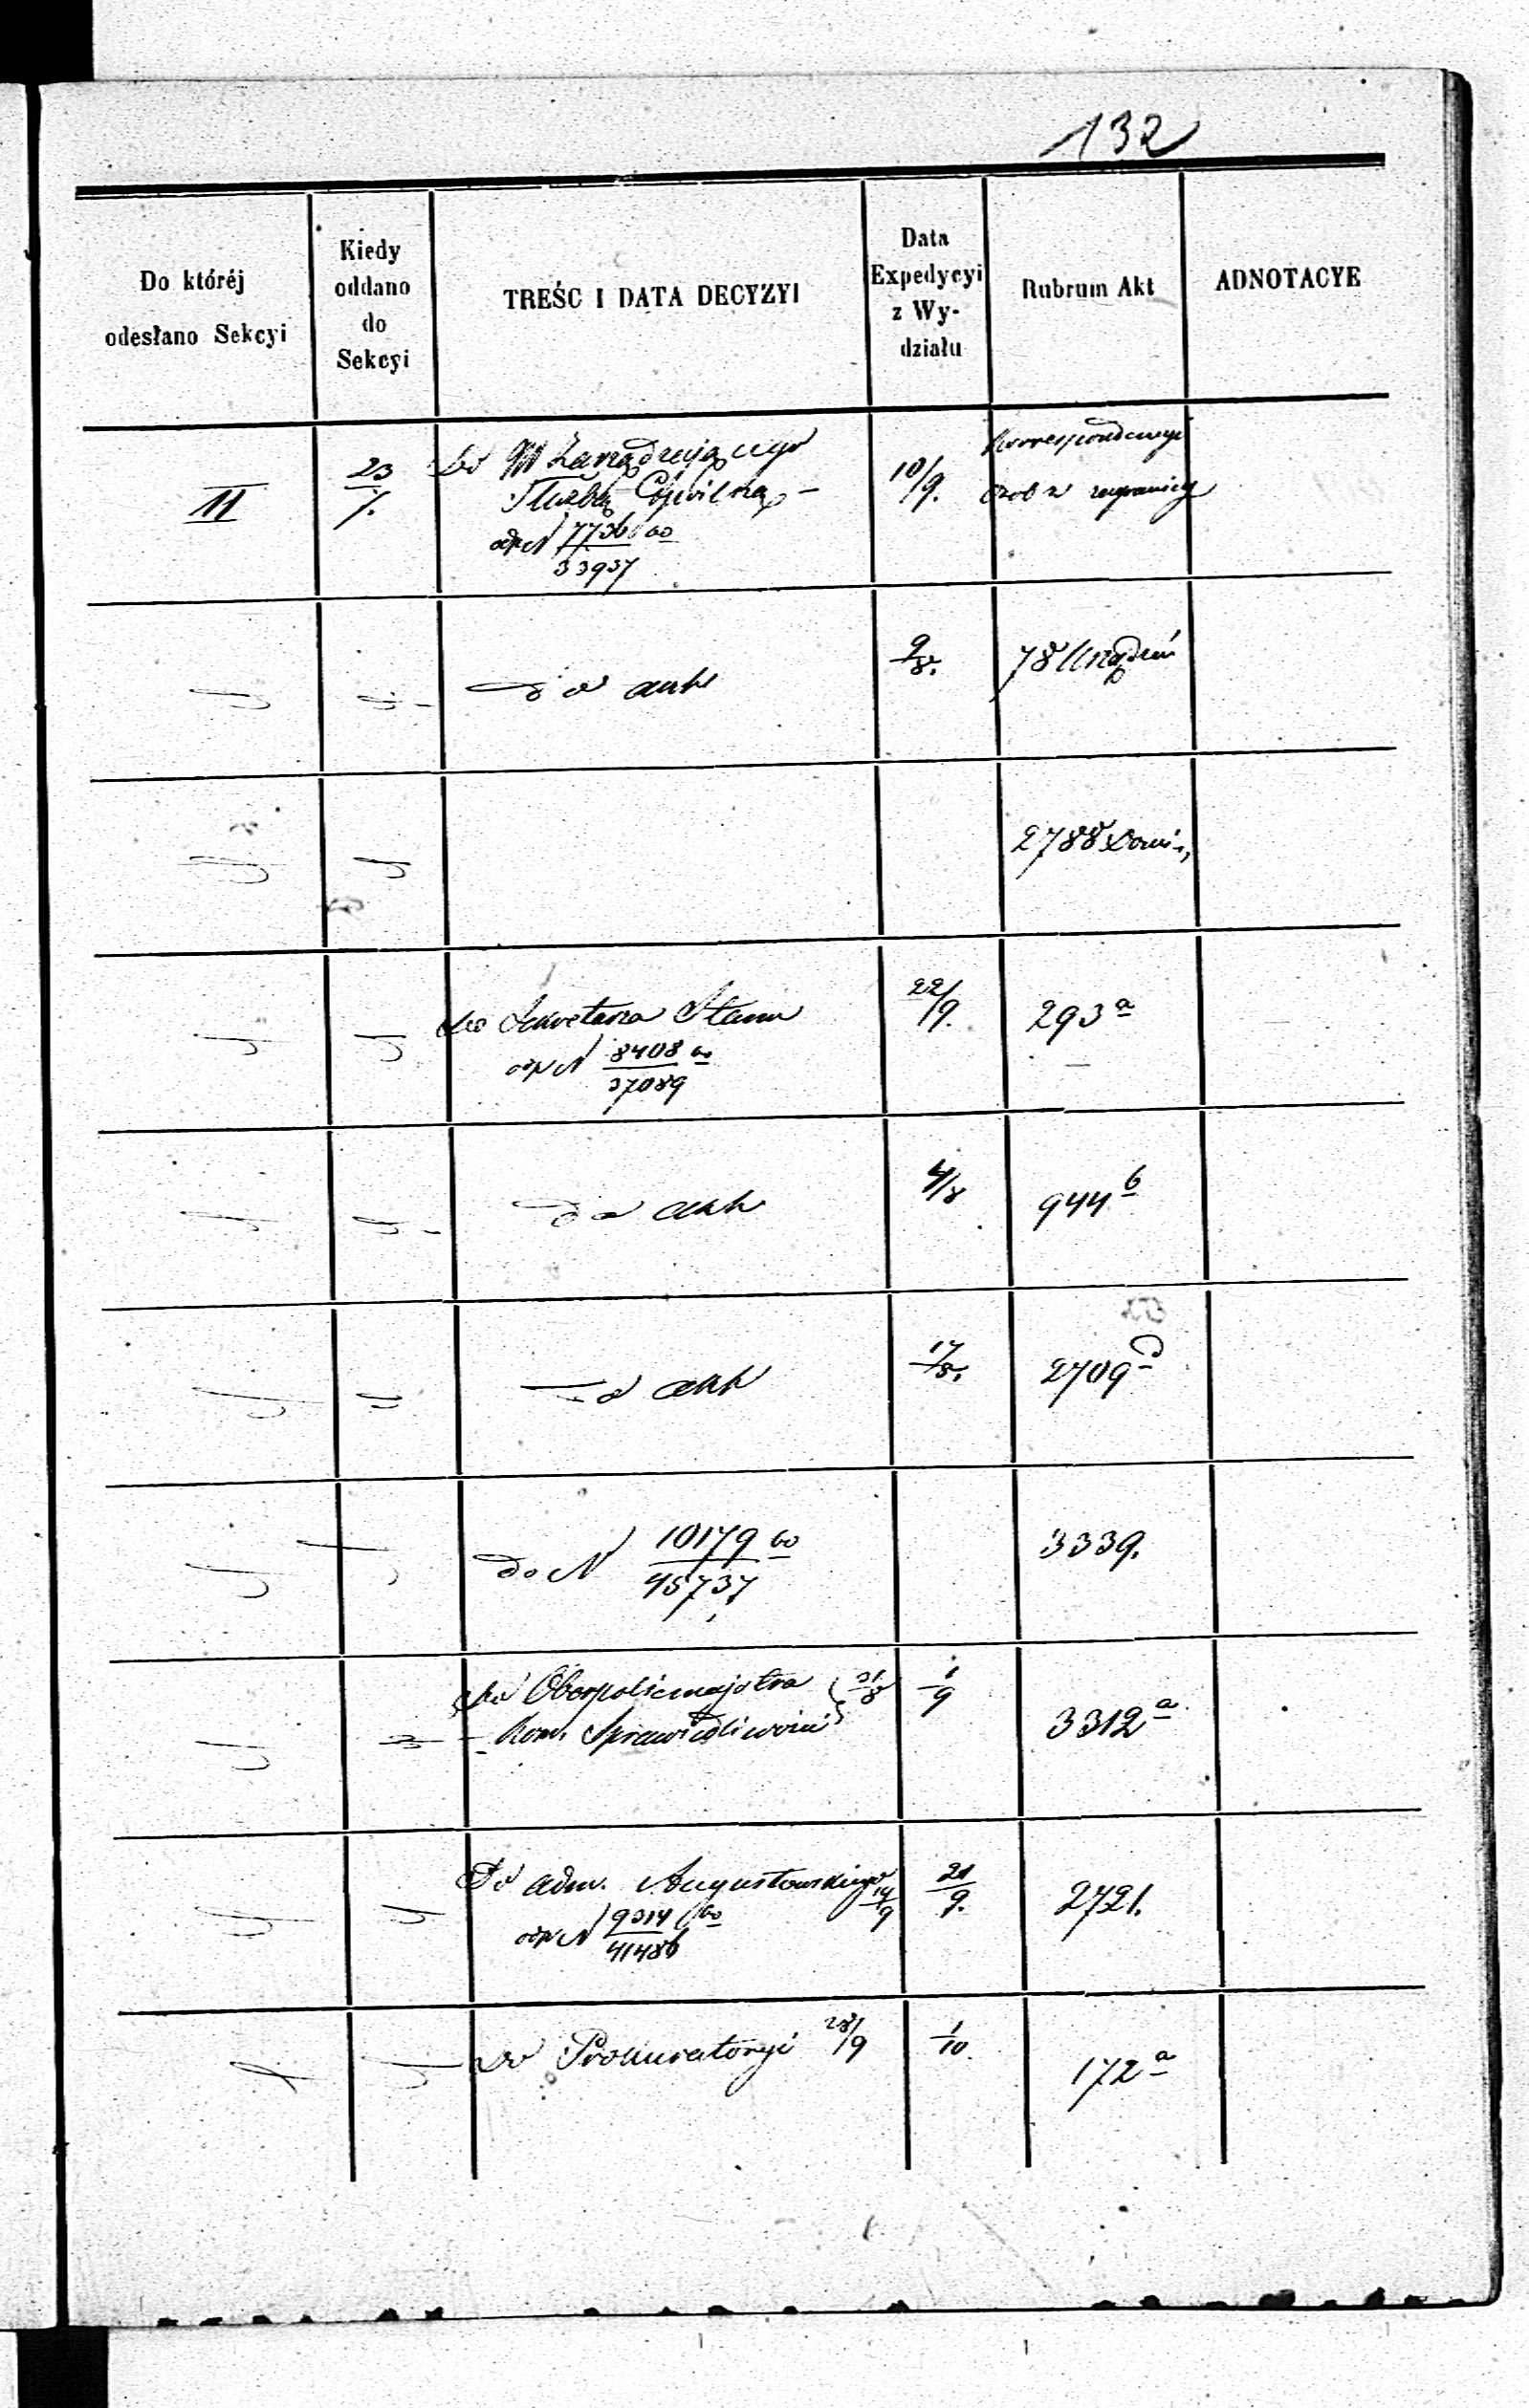 132
Do któréj
odesłano Sekcyi
Kiedy
oddano
do
Sekcyi
TREŚC I DATA DECYZYI
Data
Expedycyi
z Wy-
działu
Rubrum Akt
ADNOTACYE
II
23/7.
Do JW Zarządzającego
Służbą Cywilną –
odp N 7736 60
33937
10/9.
Korrespondencyi
Osob z zagranicy
do akt
9/8.
78 Urządzeń
2788
do Sekretarza Stanu
odp N 8408 60
37089
22/9.
293 a
do akt
4/8
944 b
do akt
17/8.
2709
do N 10179 60
45737
3339.
do Oberpolicmajstra
Kom. Sprawiedliwości
31/8
1/9
3312 a
Do adm. Augustowskiego
14/9
odp N 9314 60
41486
21/9.
2721.
do Prokuratoryi 28/9
1/10
172 a